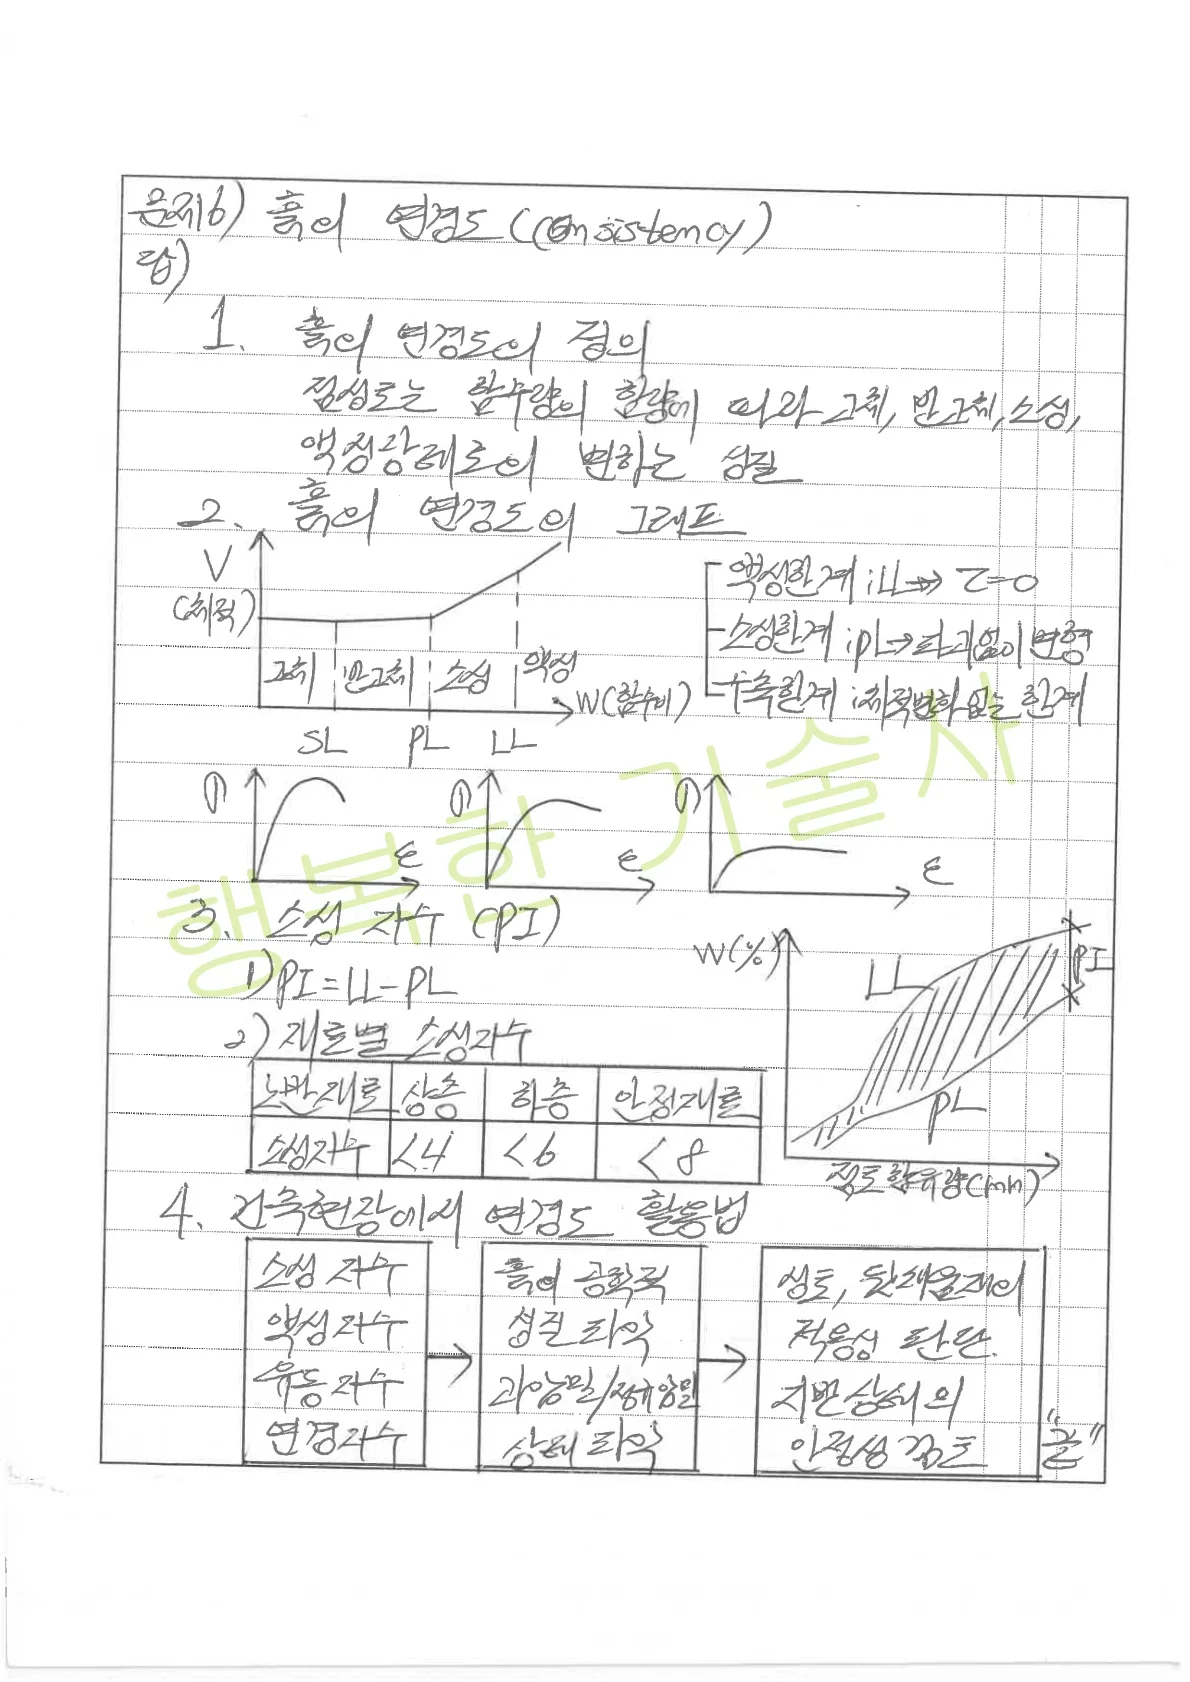 문제6) 흙의 연경도(Consistency)
답)
1. 흙의 연경도의 정의
점성토는 함수량의 함량에 따라 고체, 반고체, 소성,
액성상태로의 변하는 성질
2. 흙의 연경도의 그래프
V
(체적)
고체 반고체 소성 액성
W(함수비)
SL PL LL
액성한계 ; LL → τ=0
소성한계 ; PL → 파괴없이 변형
수축한계 ; 체적변화 없는 한계
σ ε σ ε σ ε
행복한 기술사
3. 소성지수 (PI)
1) PI = LL - PL
2) 재료별 소성지수
노반재료 상층 하층 안정재료
소성지수 <4 <6 <8
W(%)
LL
PI
PL
점토함유량(mm)
4. 건축현장에서 연경도 활용법
소성지수
액성지수
유동지수
연경지수
흙의 공학적
성질 파악
과압밀/정규압밀
상태 파악
성토, 뒷채움재의
적용성 판단.
지반상태의
안정성 검토
"끝"